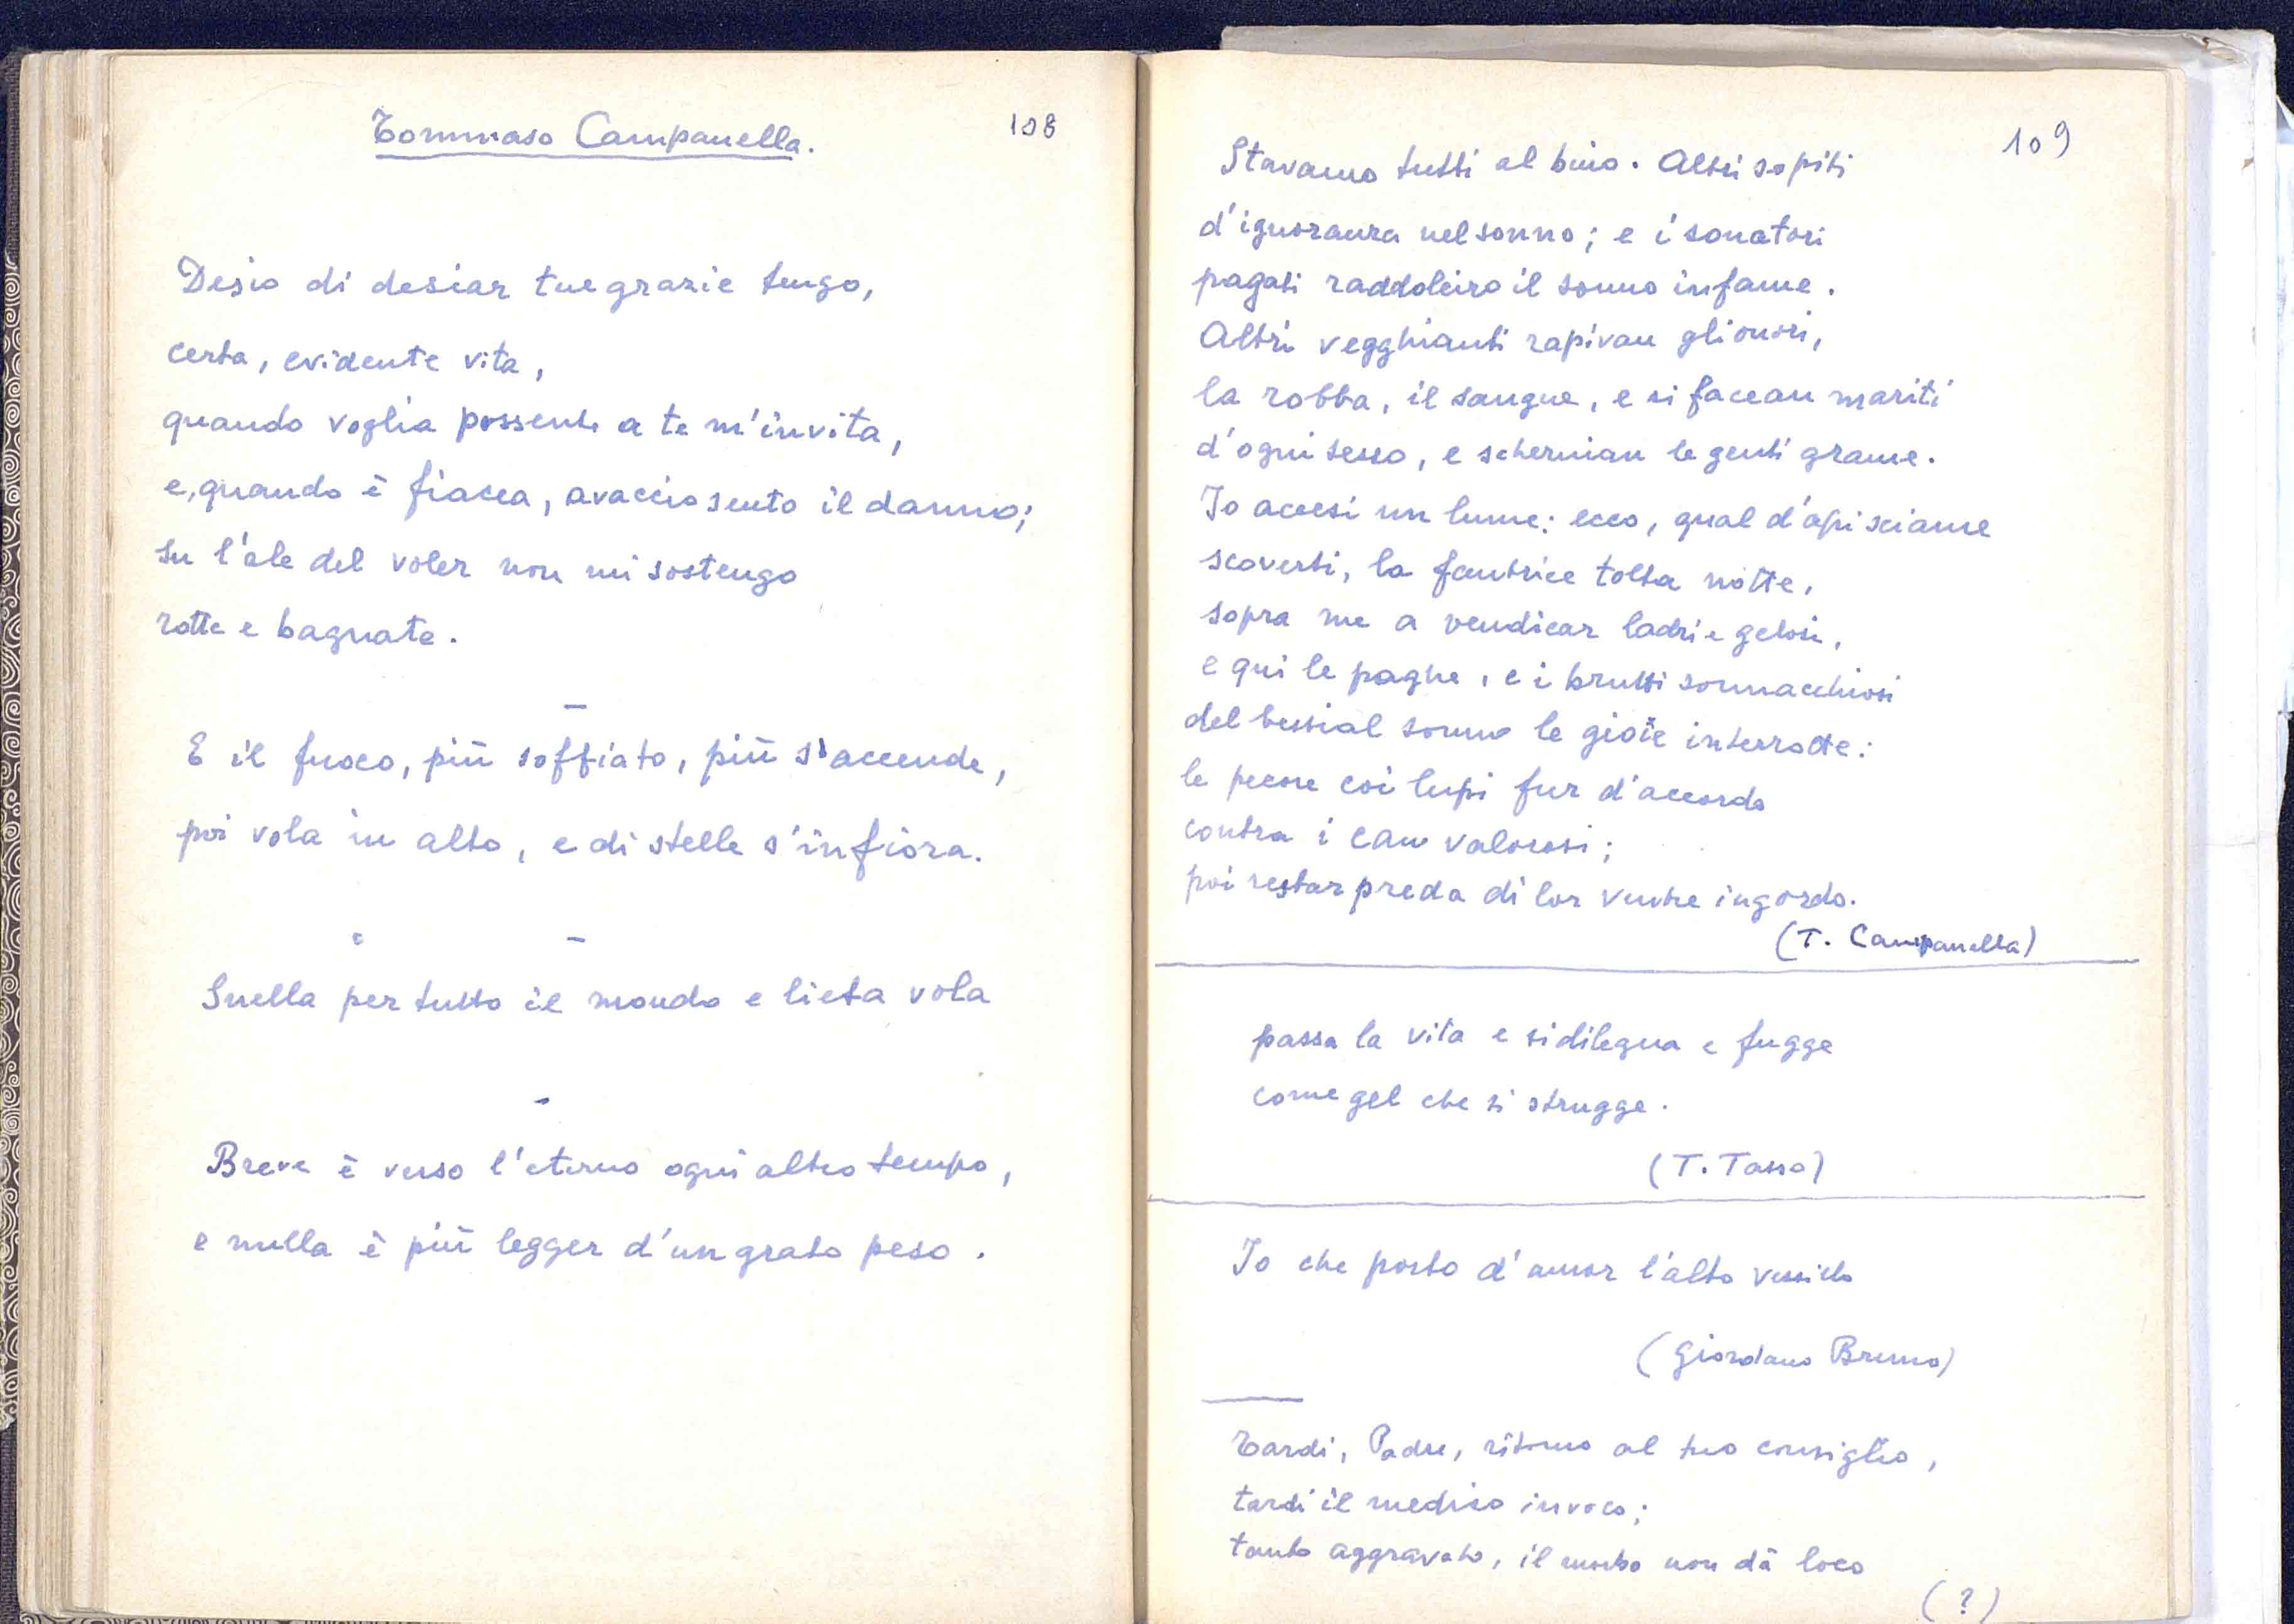 Tommaso Campanella.
108
Desio di desiar tue grazie tengo,
certa, evidente vita,
quando voglia possente a te m'invita,
e, quando è fiacca, avaccio sento il danno;
su l'ale del voler non mi sostengo
rotte e bagnate.
—
E il fuoco, più soffiato, più s'accende,
poi vola in alto, e di stelle s'infiora.
—
Snella per tutto il mondo e lieta vola
-
Breve è verso l'eterno ogni altro tempo,
e nulla è più legger d'un grato peso.
109
Stavamo tutti al buio. Altri sopiti
d'ignoranza nel sonno; e i sonatori
pagati raddolciro il sonno infame.
Altri vegghianti rapivan gli onori,
la robba, il sangue, e si facean mariti
d'ogni sesso, e schernian le genti grame.
Io accesi un lume: ecco, qual d'api sciame
scoverti, la fautrice tolta notte,
sopra me a vendicar ladri e gelosi,
e qui le paghe, e i brutti sonnacchiosi
del bestial sonno le gioie interrotte:
le pecore coi lupi fur d'accordo
contra i can valorosi;
poi restar preda di lor ventre ingordo.
(T. Campanella)
passa la vita e si dilegua e fugge
come gel che si strugge.
(T. Tasso)
Io che porto d'amor l'alto vessillo
(Giordano Bruno)
Tardi, Padre, ritorno al tuo consiglio,
tardi il medico invoco;
tanto aggravato, il morbo non dà loco
(?)